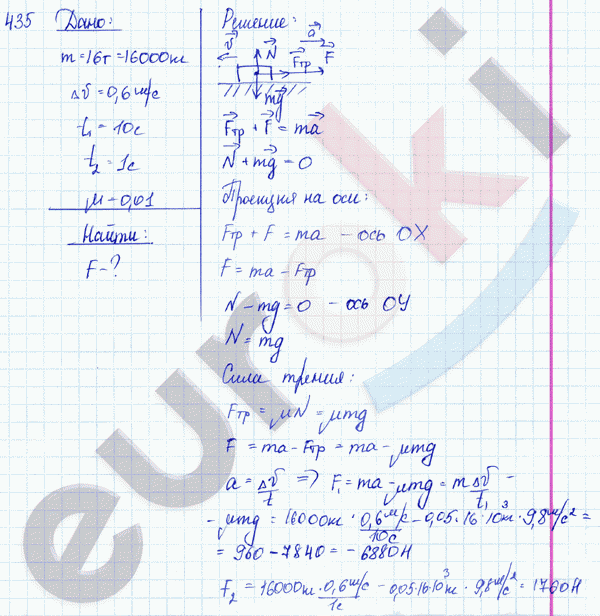 435 Дано:
m = 16т = 16000кг
Δυ = 0,6 м/с
t₁ = 10с
t₂ = 1с
μ = 0,01
Найти:
F - ?
Решение:
υ N a
Fтр F
mg
Fтр + F = ma
N + mg = 0
Проекция на оси:
Fтр + F = ma - ось OX
F = ma - Fтр
N - mg = 0 - ось OY
N = mg
Сила трения:
Fтр = μN = μmg
F = ma - Fтр = ma - μmg
a = Δυ/t => F₁ = ma - μmg = m Δυ/t₁ -
- μmg = 16000кг · 0,6 м/с / 10с - 0,05 · 16 · 10³кг · 9,8 м/с² =
= 960 - 7840 = - 6880Н
F₂ = 16000кг · 0,6 м/с / 1с - 0,05 · 16 · 10³кг · 9,8 м/с² = 1760Н
euroki